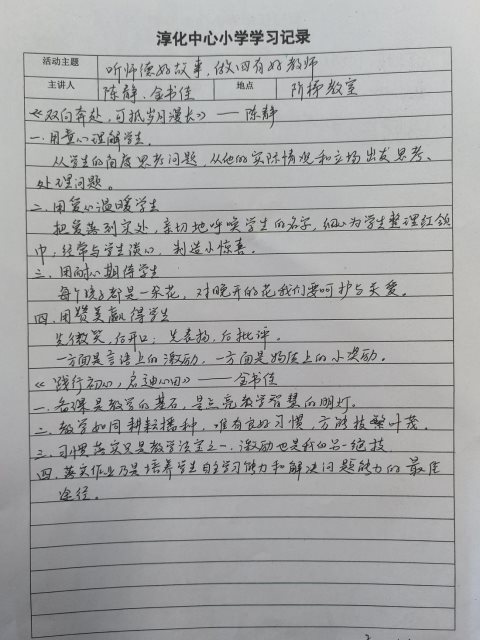 淳化中心小学学习记录
活动主题 听师德好故事,做四有好教师
主讲人 陈静、金书佳 地点 阶梯教室
《双向奔赴,可抵岁月漫长》——陈静
一.用童心理解学生.
从学生的角度思考问题,从他的实际情况和立场出发思考、
处理问题。
二.用爱心温暖学生
把爱落到实处,亲切地呼唤学生的名字,细心为学生整理红领
巾,经常与学生谈心,制造小惊喜.
三.用耐心期待学生
每个孩子都是一朵花,对晚开的花我们要呵护与关爱.
四.用赞美赢得学生
先微笑,后开口;先表扬,后批评.
一方面是言语上的激励,一方面是物质上的小奖励.
《践行初心,启迪心田》——金书佳
一.备课是教学的基石,是点亮教学智慧的明灯.
二.教学如同耕耘播种,唯有良好习惯,方能枝繁叶茂.
三.习惯落实只是教学法宝之一.激励也是我的另一绝技
四.落实作业乃是培养学生自主学习能力和解决问题能力的最佳
途径.